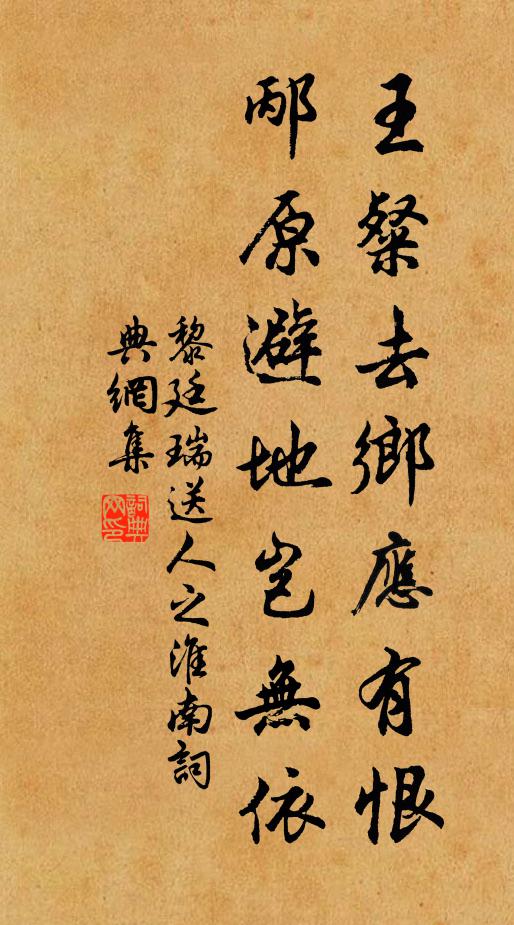 王粲去鄉應有恨
邴原避地岂無依
黎廷瑞送人之淮南詞
典網集
詞典
网印